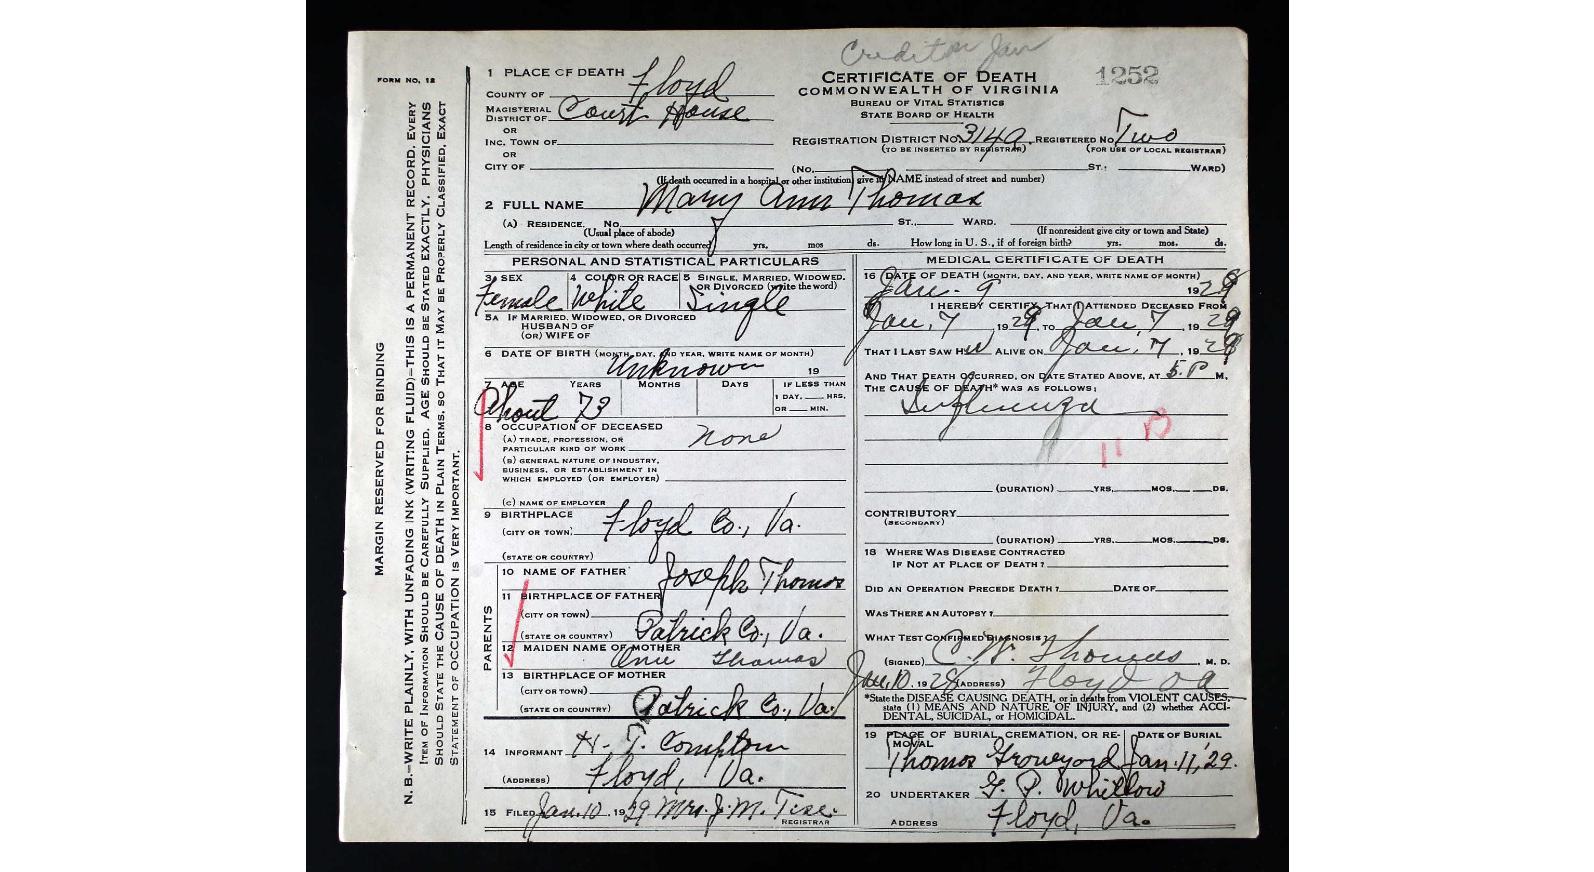 Credit on Jan
FORM NO. 12
MARGIN RESERVED FOR BINDING
N. B.—WRITE PLAINLY, WITH UNFADING INK (WRITING FLUID)—THIS IS A PERMANENT RECORD. EVERY
ITEM OF INFORMATION SHOULD BE CAREFULLY SUPPLIED. AGE SHOULD BE STATED EXACTLY. PHYSICIANS
SHOULD STATE THE CAUSE OF DEATH IN PLAIN TERMS, SO THAT IT MAY BE PROPERLY CLASSIFIED. EXACT
STATEMENT OF OCCUPATION IS VERY IMPORTANT.
1 PLACE OF DEATH
COUNTY OF Floyd
MAGISTERIAL DISTRICT OF Court House
OR
INC. TOWN OF
OR
CITY OF
CERTIFICATE OF DEATH
COMMONWEALTH OF VIRGINIA
BUREAU OF VITAL STATISTICS
STATE BOARD OF HEALTH
1252
REGISTRATION DISTRICT NO. 3149 REGISTERED NO. Two
(TO BE INSERTED BY REGISTRAR) (FOR USE OF LOCAL REGISTRAR)
(NO. ST.; WARD)
(If death occurred in a hospital or other institution, give its NAME instead of street and number)
2 FULL NAME Mary Ann Thomas
(A) RESIDENCE. No. ST., WARD.
(Usual place of abode) (If nonresident give city or town and State)
Length of residence in city or town where death occurred yrs. mos ds. How long in U. S., if of foreign birth? yrs. mos. ds.
PERSONAL AND STATISTICAL PARTICULARS
3 SEX 4 COLOR OR RACE 5 SINGLE, MARRIED, WIDOWED, OR DIVORCED (write the word)
Female White Single
5A IF MARRIED, WIDOWED, OR DIVORCED
HUSBAND OF
(OR) WIFE OF
6 DATE OF BIRTH (MONTH, DAY, AND YEAR, WRITE NAME OF MONTH)
Unknown 19
7 AGE YEARS MONTHS DAYS IF LESS THAN
1 DAY, HRS.
OR MIN.
About 73
8 OCCUPATION OF DECEASED
(A) TRADE, PROFESSION, OR
PARTICULAR KIND OF WORK none
(B) GENERAL NATURE OF INDUSTRY,
BUSINESS, OR ESTABLISHMENT IN
WHICH EMPLOYED (OR EMPLOYER)
(C) NAME OF EMPLOYER
9 BIRTHPLACE
(CITY OR TOWN) Floyd Co., Va.
(STATE OR COUNTRY)
PARENTS
10 NAME OF FATHER Joseph Thomas
11 BIRTHPLACE OF FATHER
(CITY OR TOWN)
(STATE OR COUNTRY) Patrick Co., Va.
12 MAIDEN NAME OF MOTHER
Ann Thomas
13 BIRTHPLACE OF MOTHER
(CITY OR TOWN)
(STATE OR COUNTRY) Patrick Co., Va.
14 INFORMANT H. T. Compton
(ADDRESS) Floyd, Va.
15 FILED Jan. 10, 1929 Mrs. J. M. Tise
REGISTRAR
MEDICAL CERTIFICATE OF DEATH
16 DATE OF DEATH (MONTH, DAY, AND YEAR, WRITE NAME OF MONTH)
Jan. 9 1929
I HEREBY CERTIFY, THAT I ATTENDED DECEASED FROM
Jan. 7, 1929, TO Jan. 7, 1929
THAT I LAST SAW H ALIVE ON Jan. 7, 1929
AND THAT DEATH OCCURRED, ON DATE STATED ABOVE, AT 5. P M.
THE CAUSE OF DEATH* WAS AS FOLLOWS:
Influenza
11 B
(DURATION) YRS. MOS. DS.
CONTRIBUTORY
(SECONDARY)
(DURATION) YRS. MOS. DS.
18 WHERE WAS DISEASE CONTRACTED
IF NOT AT PLACE OF DEATH?
DID AN OPERATION PRECEDE DEATH? DATE OF
WAS THERE AN AUTOPSY?
WHAT TEST CONFIRMED DIAGNOSIS?
(SIGNED) C. W. Thomas, M. D.
Jan, 10, 1928 (ADDRESS) Floyd Va
*State the DISEASE CAUSING DEATH, or in deaths from VIOLENT CAUSES,
state (1) MEANS AND NATURE OF INJURY, and (2) whether ACCI-
DENTAL, SUICIDAL, or HOMICIDAL.
19 PLACE OF BURIAL, CREMATION, OR RE- DATE OF BURIAL
MOVAL
Thomas Graveyard Jan. 11, '29.
20 UNDERTAKER G. P. Whitlow
ADDRESS Floyd, Va.